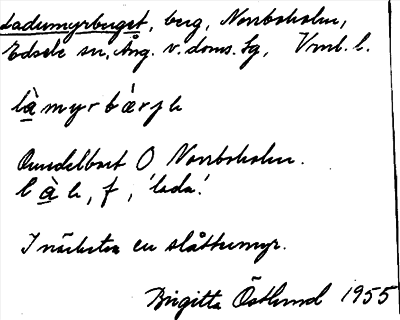 Ladumyrberget, berg, Norrboholm,
Edsele sn, Ång. v. doms. sg, Vrml. l.
là myr bàrje
Omedelbart O Norrboholm.
làh, f, 'lada'.
I närheten en slåttermyr.
Birgitta Östlund 1955